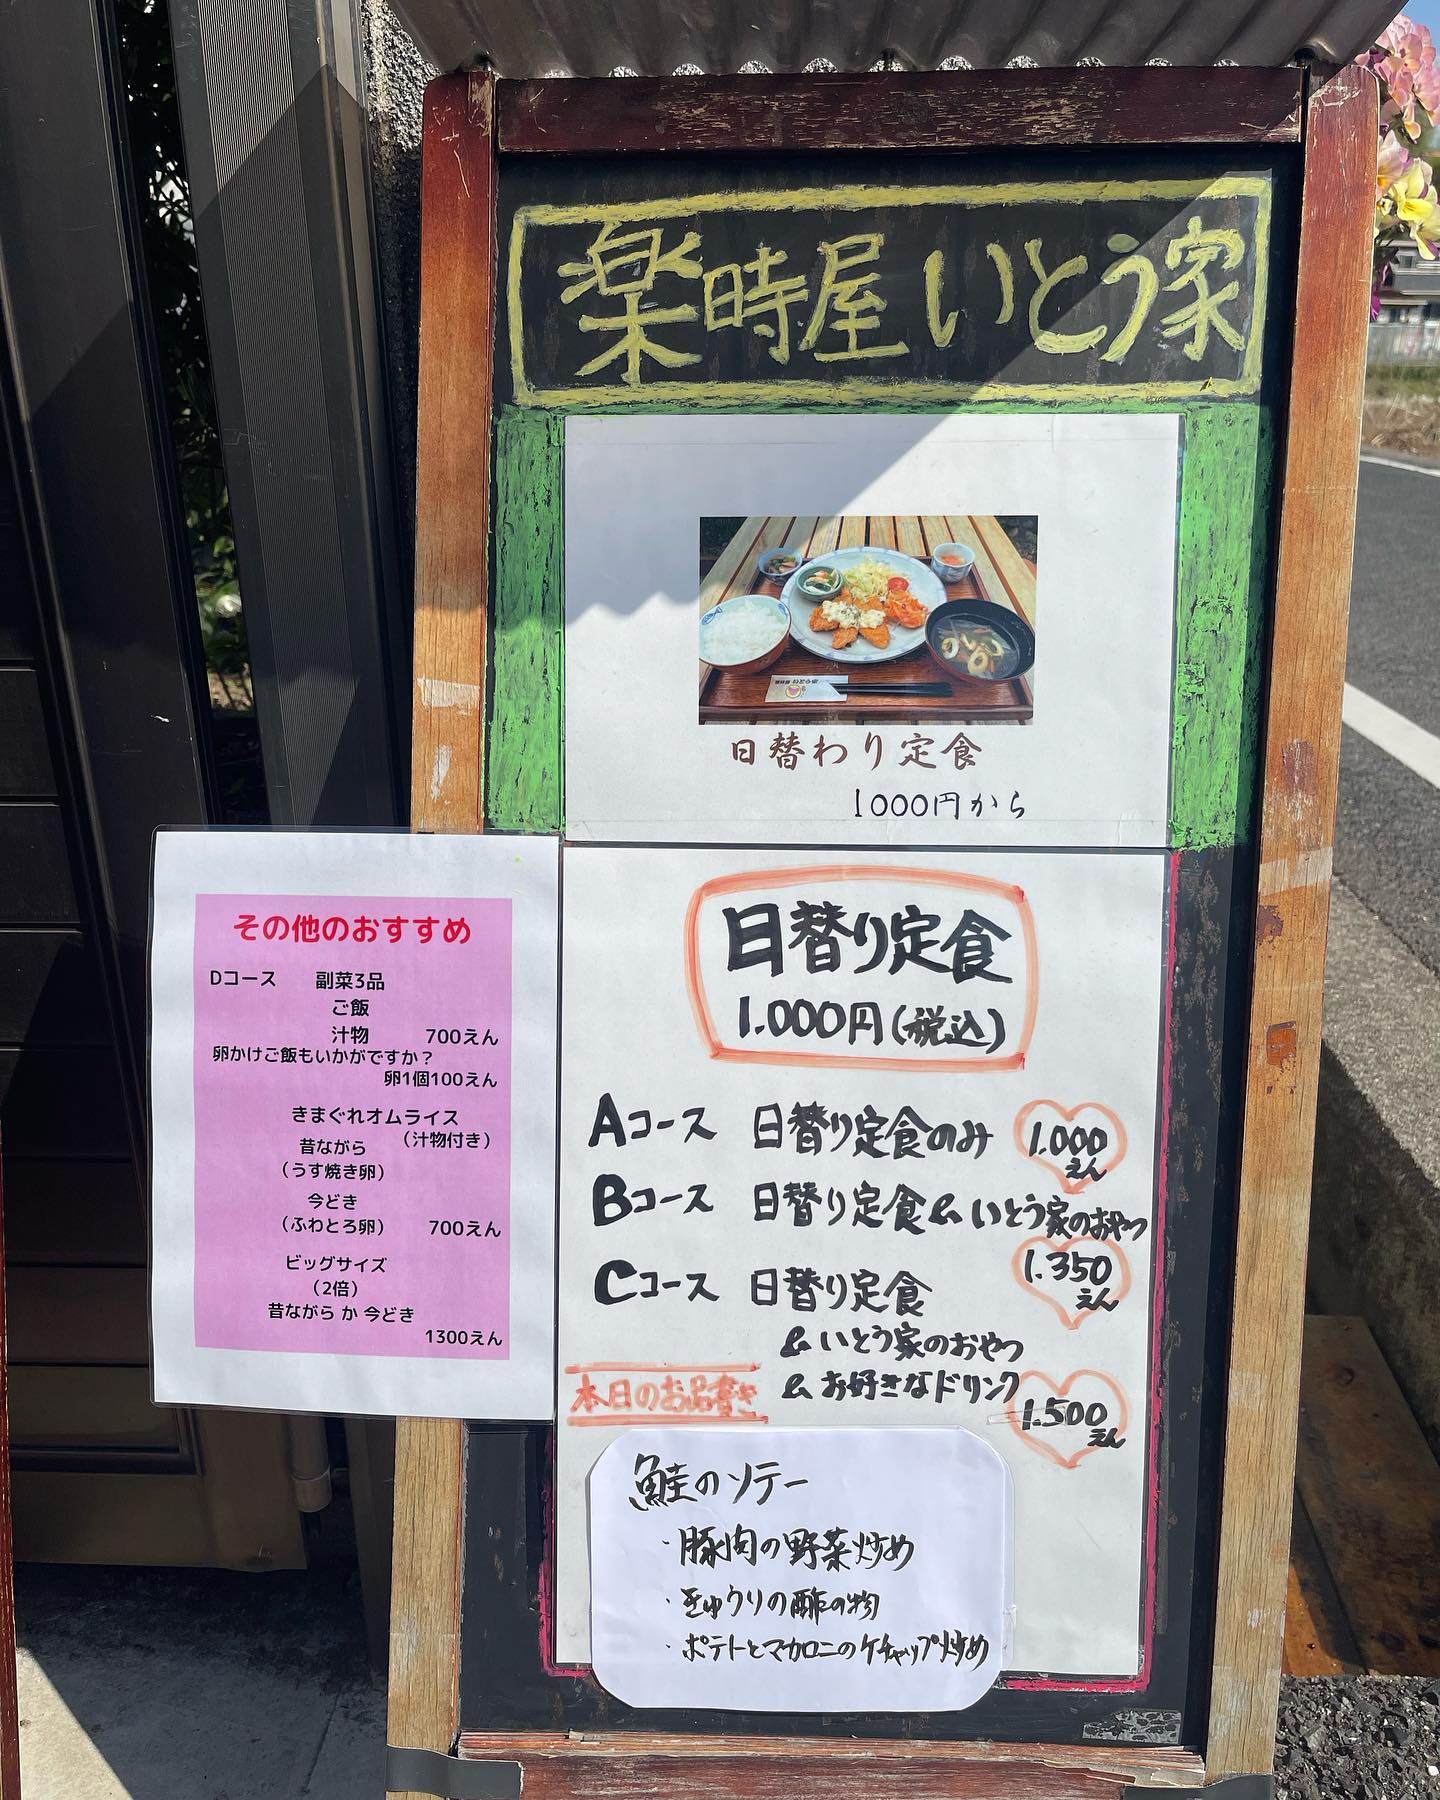 楽時屋 いとう家
日替わり定食
1000円から
日替り定食
1.000円(税込)
Aコース 日替り定食のみ 1.000えん
Bコース 日替り定食&いとう家のおやつ
1.350えん
Cコース 日替り定食
&いとう家のおやつ
&お好きなドリンク
1.500えん
本日のお品書き
鮭のソテー
・豚肉の野菜炒め
・きゅうりの酢の物
・ポテトとマカロニのケチャップ炒め
その他のおすすめ
Dコース 副菜3品
ご飯
汁物 700えん
卵かけご飯もいかがですか？
卵1個100えん
きまぐれオムライス
（汁物付き）
昔ながら
（うす焼き卵）
今どき
（ふわとろ卵） 700えん
ビッグサイズ
（2倍）
昔ながら か 今どき
1300えん